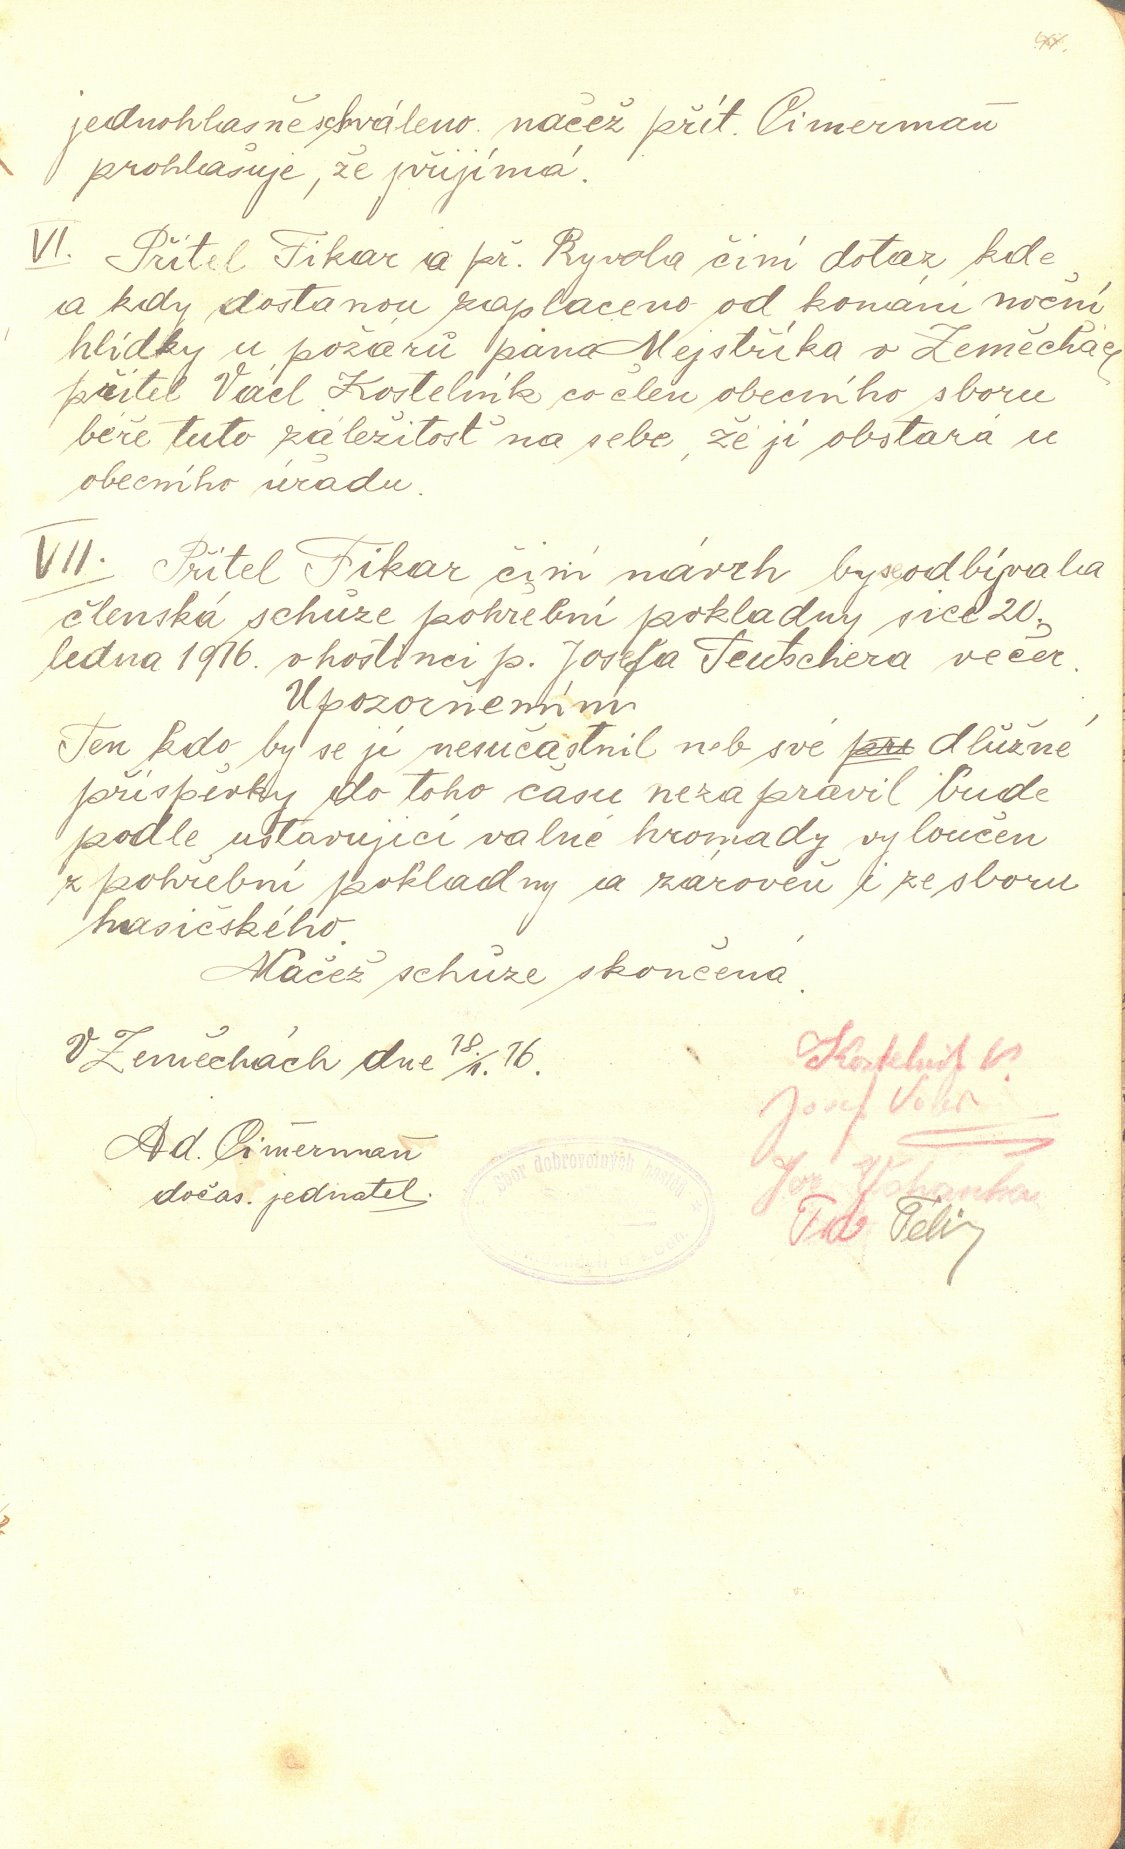 44.
jednohlasně schváleno. načež přít. Cimermann
prohlašuje, že přijímá.
VI. Přítel Fikar a př. Ryvola činí dotaz kde
a kdy dostanou zaplaceno od konání noční
hlídky u požárů pána Mejstříka v Zeměchách
přítel Václ Kostelník co člen obecního sboru
béře tuto záležitosť na sebe, že ji obstará u
obecního úřadu.
VII. Přítel Fikar činí návrh by se odbývala
členská schůze pohřební pokladny sice 20.
ledna 1916. v hostinci p. Josefa Teutschera večer.
Upozorněním
Ten kdo by se jí nesúčastnil neb své pří dlužné
příspěvky do toho času nezapravil bude
podle ustavující valné hromady vyloučen
z pohřební pokladny a zároveň i ze sboru
hasičského.
Načež schůze skončená.
V Zeměchách dne 18/1. 16.
Kostelník V.
Josef
Ad. Cimermann
dočas. jednatel.
Sbor dobrovolných hasičů
Jos.